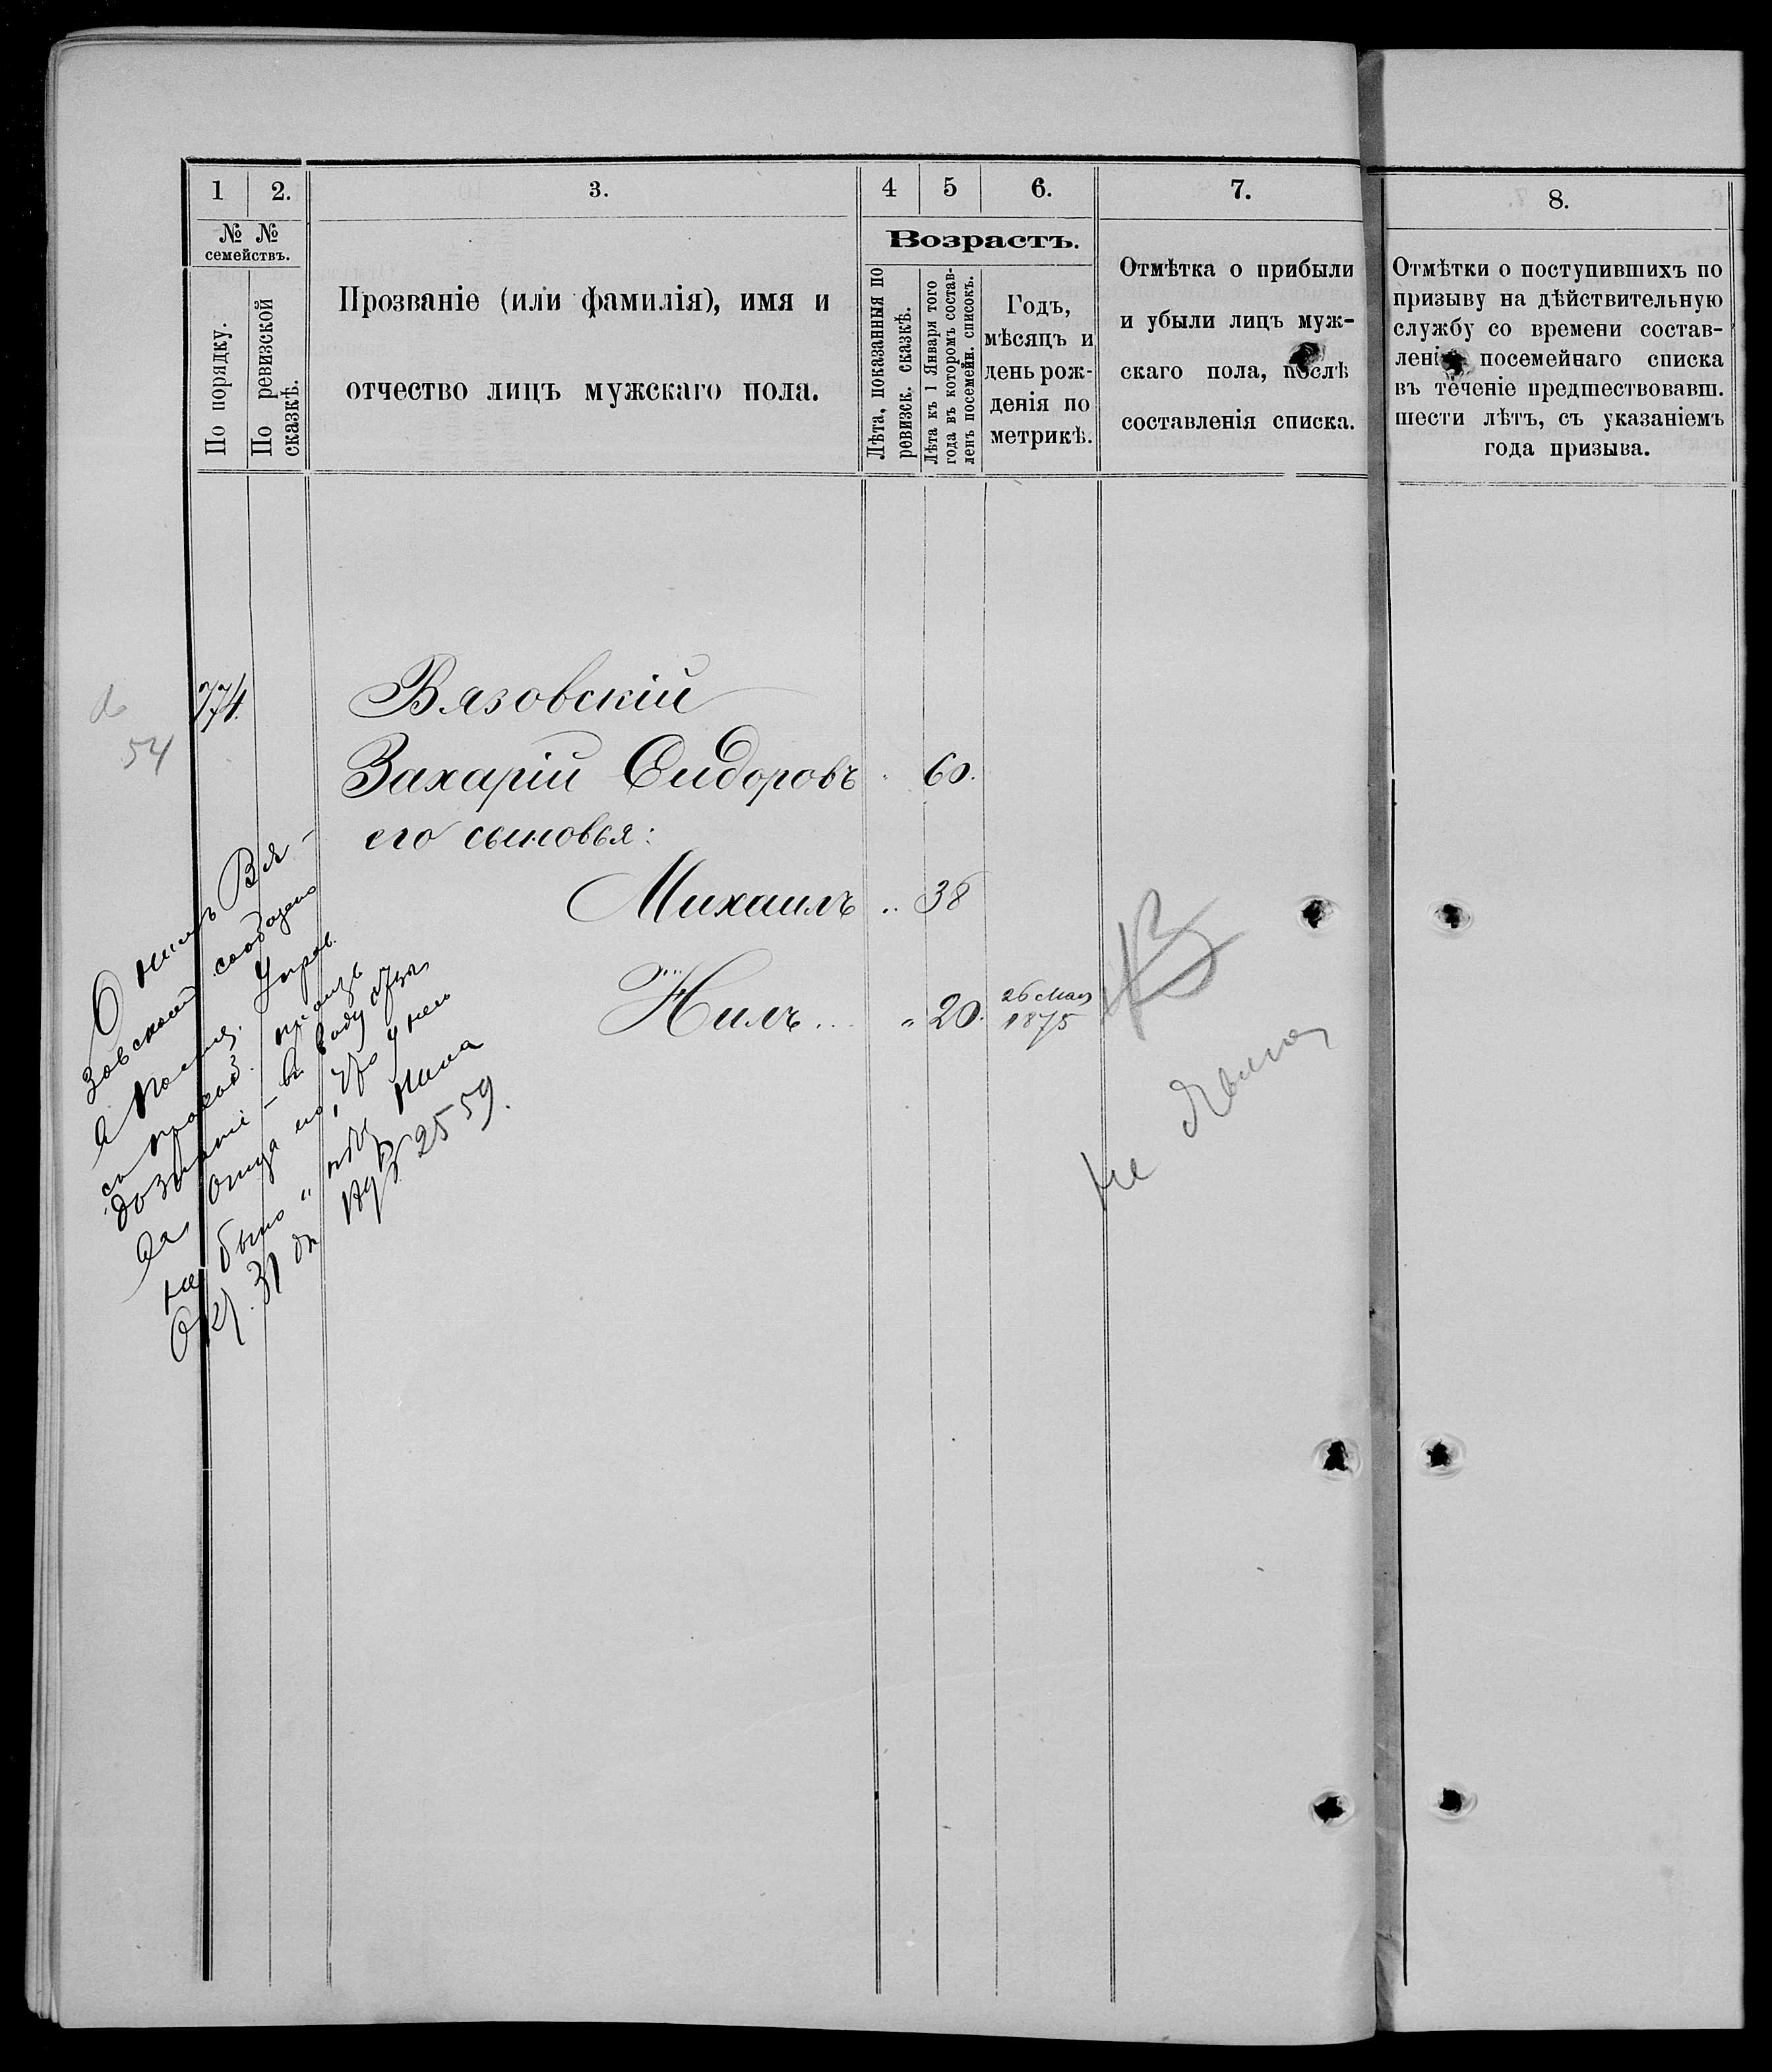 1
2.
3.
4
5
6.
7.
8.
№ №
семействъ.
По порядку.
По ревизской
сказкѣ.
Прозваніе (или фамилія), имя и
отчество лицъ мужскаго пола.
Возрастъ.
Лѣта, показанныя по
ревизск. сказкѣ.
Лѣта къ 1 Января того
года въ которомъ состав-
ленъ посемейн. списокъ.
Годъ,
мѣсяцъ и
день рож-
денія по
метрикѣ.
Отмѣтка о прибыли
и убыли лицъ муж-
скаго пола, послѣ
составленія списка.
Отмѣтки о поступившихъ по
призыву на дѣйствительную
службу со времени состав-
леніи посемейнаго списка
въ теченіе предшествовавш.
шести лѣтъ, съ указаніемъ
года призыва.
54
774.
Вязовскій
Захарій Сидоровъ 60.
его сыновья:
Михаилъ .. 38
Нилъ ... „ 20. 26 Мая
1875
не явился
О Нилѣ Вя-
зовскомъ сообщено
Управ.
въ виду
отца его, что у него
не было
Нила
Окт. 31 дн № 2559.